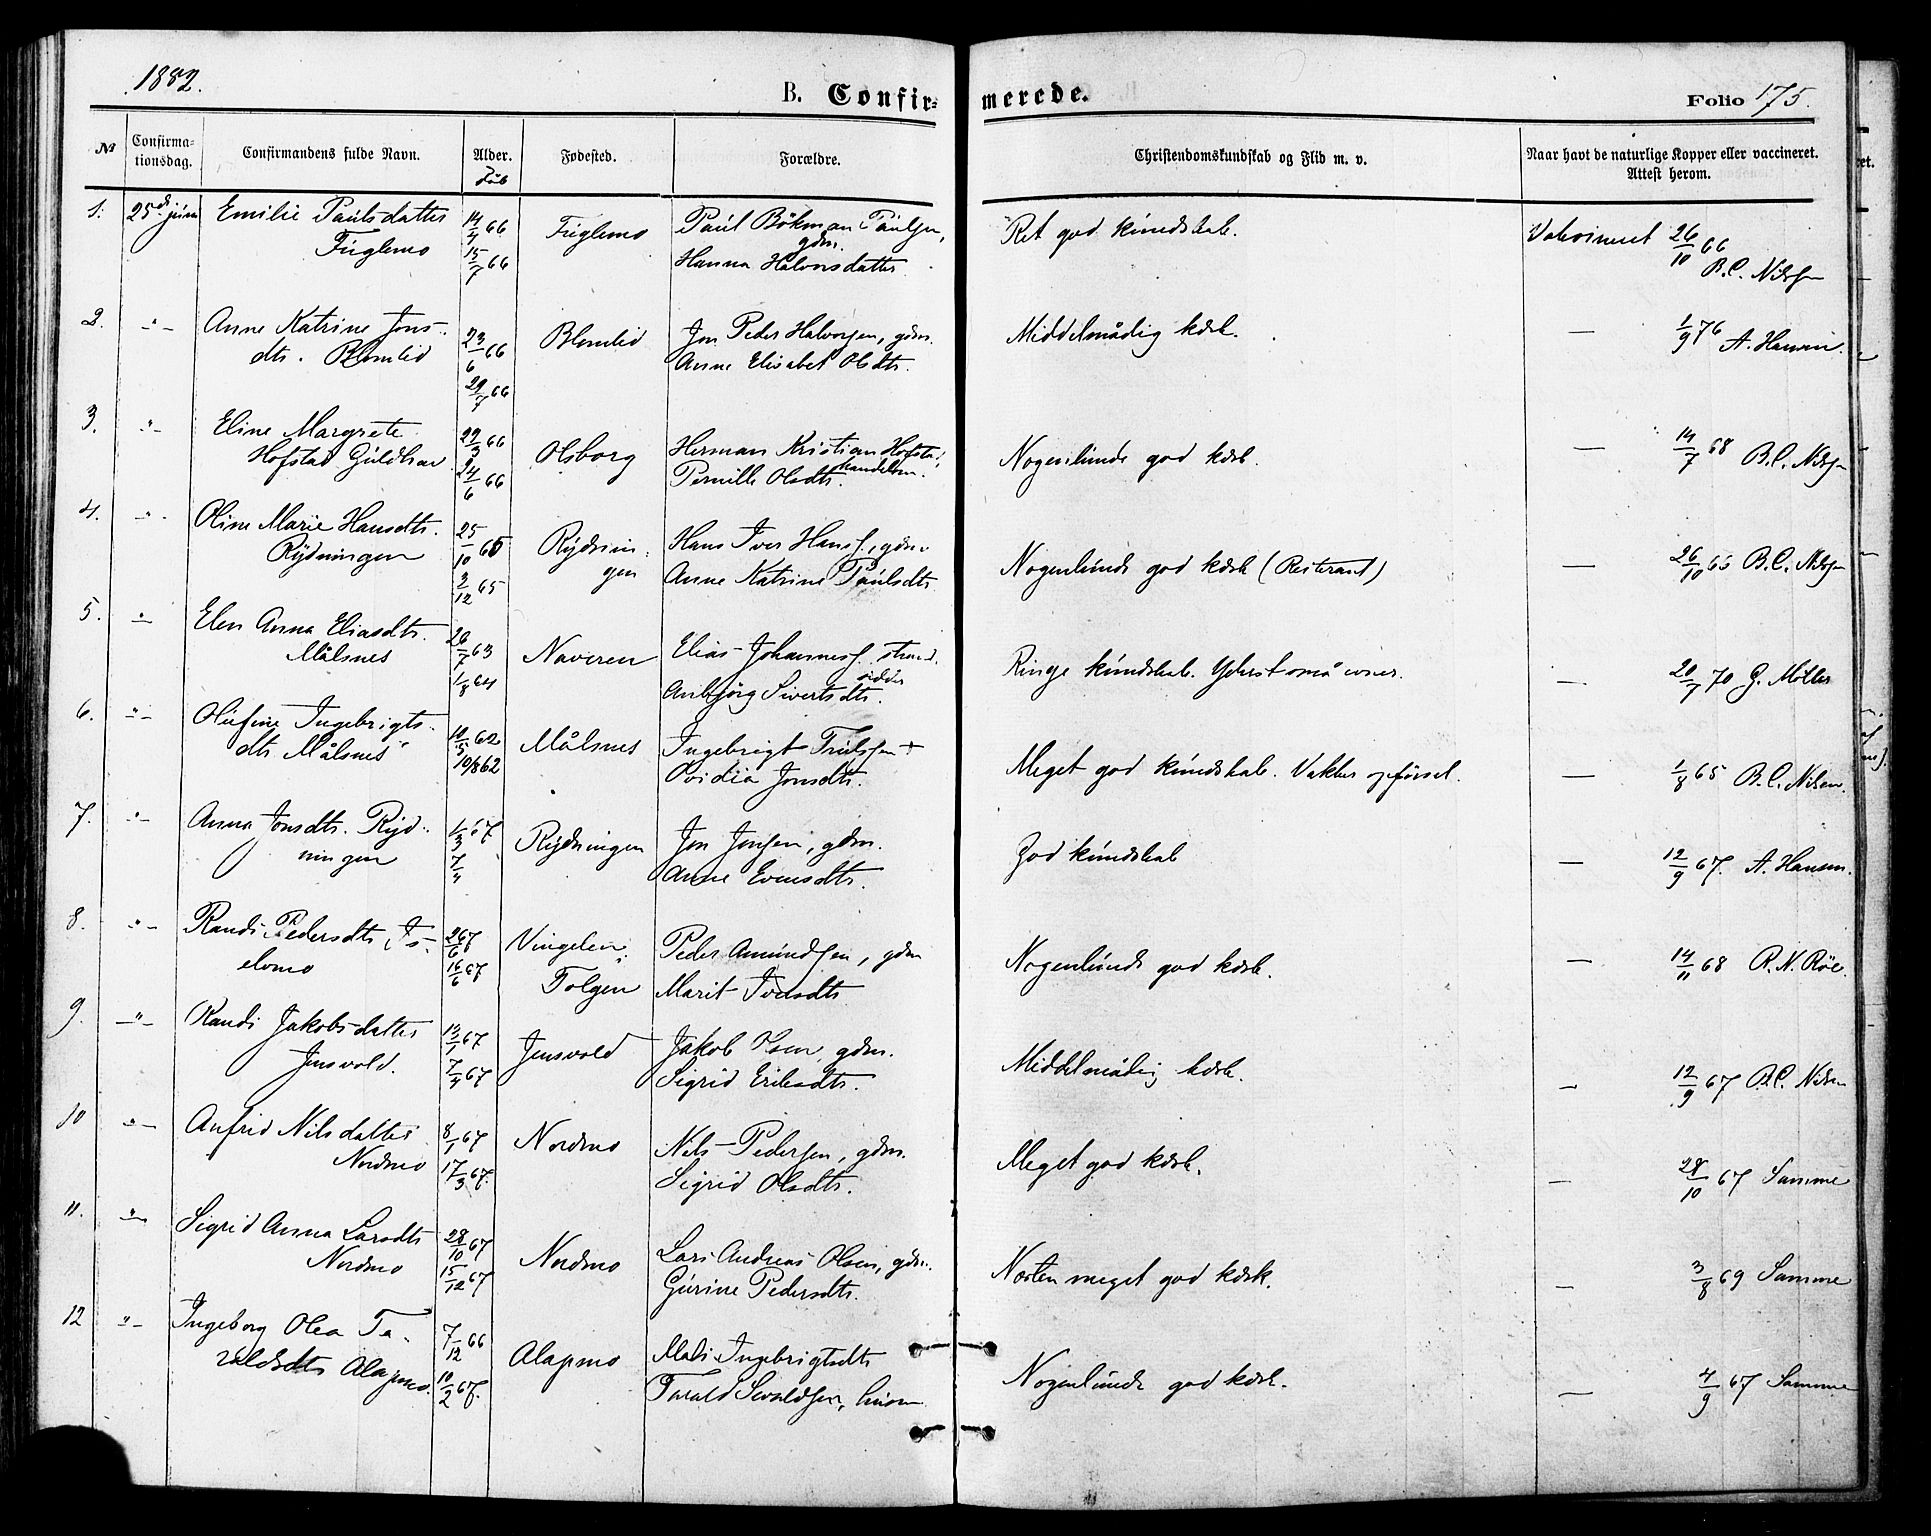 1882.
B. Confir-
merede.
Folio 175.
№
Confirma-
tionsdag.
Confirmandens fulde Navn.
Alder.
Dåb
Fødested.
Forældre.
Christendomskundskab og Flid m. v.
Naar havt de naturlige Kopper eller vaccineret.
Attest herom.
1. 25de juni Emilie Paulsdatter 14/4 66 Fuglemo Paul Bökman Paulsen, Ret god kundskab. Vakcineret 26/10 66
Fuglemo 15/7 66 gdm. B.C. Nilssen
Hanna Halvorsdatter
2. -"- Anne Katrine Jons- 23/6 66 Blomlid Jon Peder Halvorsen, gdm. Middelmådig kdsk. — 1/9 76 A. Hansen.
dtr. Blomlid 29/7 66 Anne Elisabet Olsdtr.
3. -"- Eline Margrete 29/3 66 Olsborg Herman Kristian Hofsta Nogenlunde god kdsk. — 14/7 68 B.C. Nilssen
Hofstad Guldhav 24/6 66 Pernille Olsdtr. handelsm.
4. -"- Oline Marie Hansdtr. 25/10 65 Rydnin- Hans Iver Hans., gdm. Nogenlunde god kdsk (Resterant) — 26/10 65 B.C. Nilssen
Rydningen 3/12 65 gen Anne Katrine Paulsdtr
5. -"- Elen Anna Eliasdtr. 26/7 63 Naveren Elias Johannes. strand- Ringe kundskab. Yderst små evner. — 20/7 70 G. Möller
Målsnes 1/8 64 sidder
Anbjörg Sivertsdtr.
6. -"- Olufine Ingebrigts- 10/5 62 Målsnes Ingebrigt Trulssen + Meget god kundskab. Vakker opförsel. — 1/8 65 B.C. Nilsen.
dtr Målsnes 10/8 62 Ovidia Jonsdtr.
7. -"- Anna Jonsdtr. Ryd- 1/3 67 Rydningen Jon Jonsen, gdm. God kundskab — 12/9 67. A. Hansen.
ningen 7/4 Anne Evensdtr.
8. -"- Randi Pedersdtr Is- 2/6 67 Vingelen i Peder Amundsen, gdm Nogenlunde god kdsk. — 14/11 68 R.N. Röe.
elvmo 16/6 67 Tolgen Marit Iversdtr
9. -"- Randi Jakobsdatter 14/1 67 Jensvold Jakob Olsen, gdm. Middelmådig kdsk. — 12/9 67 B.C. Nilsen
Jensvold. 7/4 67 Sigrid Eriksdtr.
10 -"- Anfrid Nilsdatter 8/1 67 Nordmo Nils Pedersen, gdm. Meget god kdsk. — 28/10 67 Samme
Nordmo 17/3 67. Sigrid Olsdtr.
11. -"- Sigrid Anna Larsdtr 28/10 67 Nordmo Lars Andreas Olsen, gdm. Næsten meget god kdsk. — 3/8 69 Samme
Nordmo 15/12 67 Gurine Pedersdtr.
12 -"- Ingeborg Olea Ta- 7/12 66 Alapmo Mali Ingebrigtsdtr Nogenlunde god kdsk. — 4/9 67 Samme
raldsdtr Alapmo. 10/2 67. Tarald Sevaldsen, husm